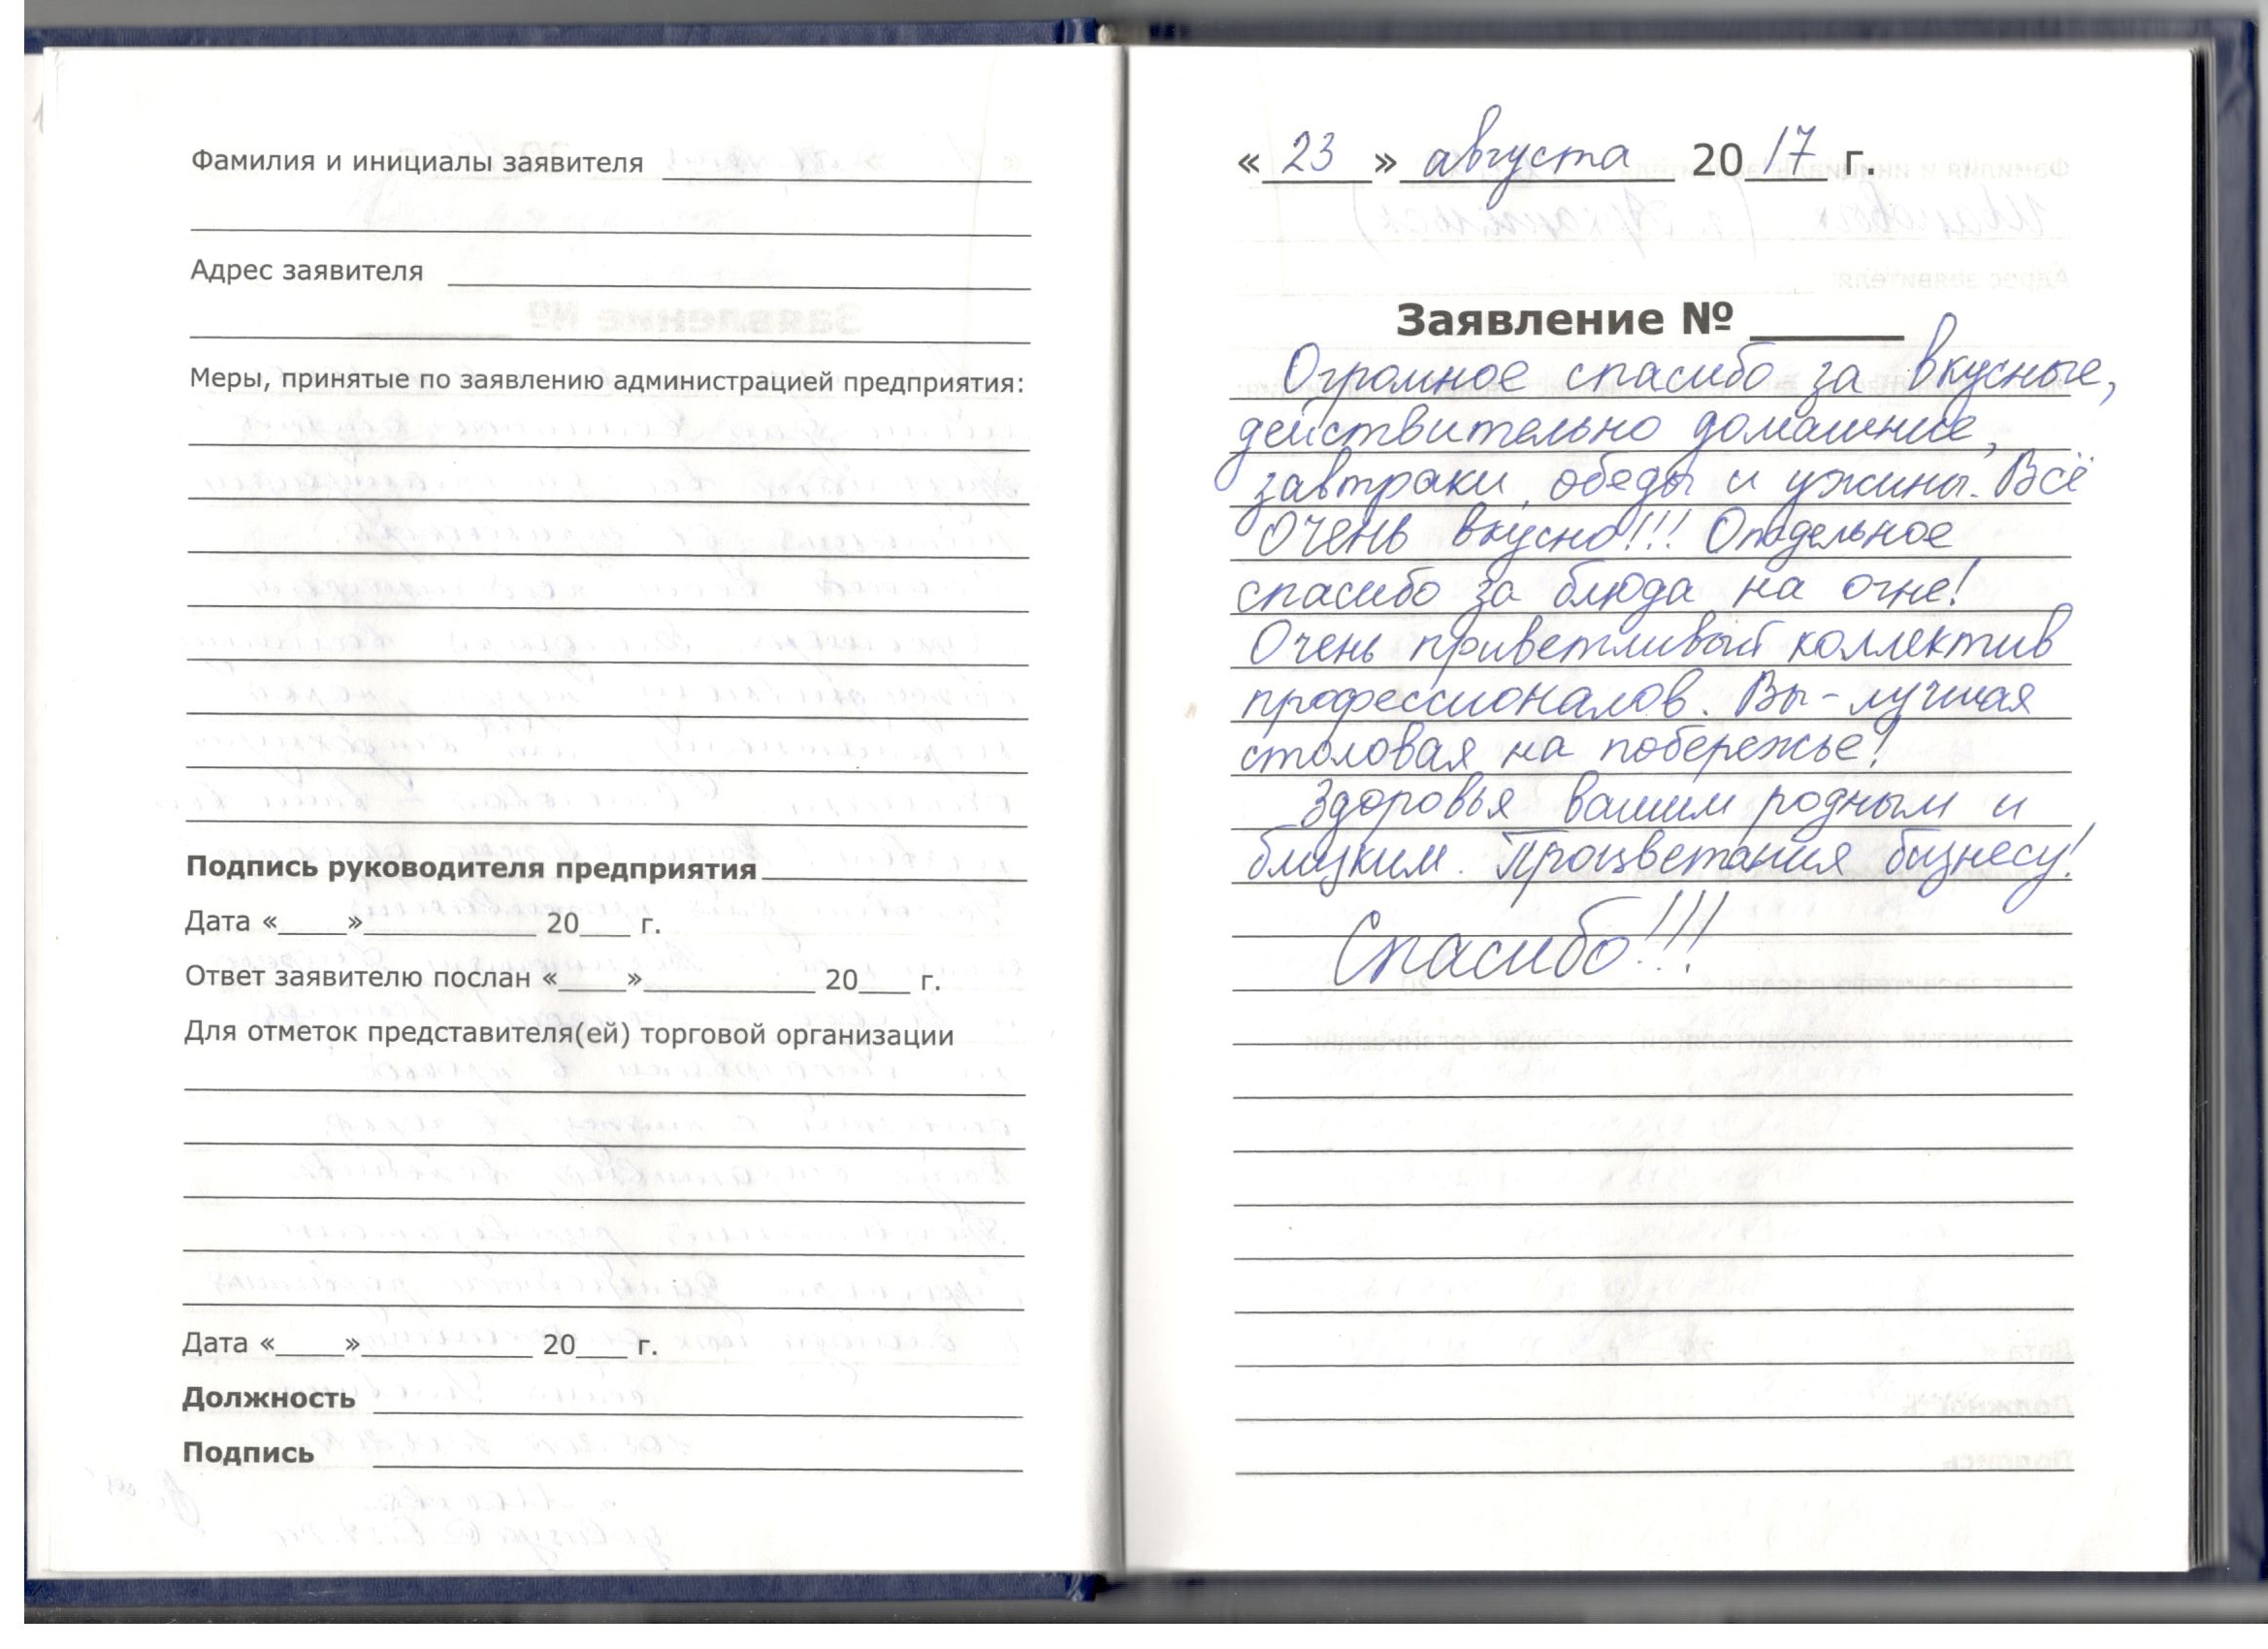 Фамилия и инициалы заявителя
Адрес заявителя
Меры, принятые по заявлению администрацией предприятия:
Подпись руководителя предприятия
Дата «____»__________ 20___ г.
Ответ заявителю послан «____»__________ 20___ г.
Для отметок представителя(ей) торговой организации
Дата «____»__________ 20___ г.
Должность
Подпись
«23» августа 2017 г.
Заявление № ______
Огромное спасибо за вкусные,
действительно домашние,
завтраки, обеды и ужины. Всё
очень вкусно!!! Отдельное
спасибо за блюда на огне!
Очень приветливый коллектив
профессионалов. Вы - лучшая
столовая на побережье!
Здоровья вашим родным и
близким. Процветания бизнесу!
Спасибо!!!